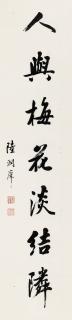 人與梅花淡結隣
陸潤庠